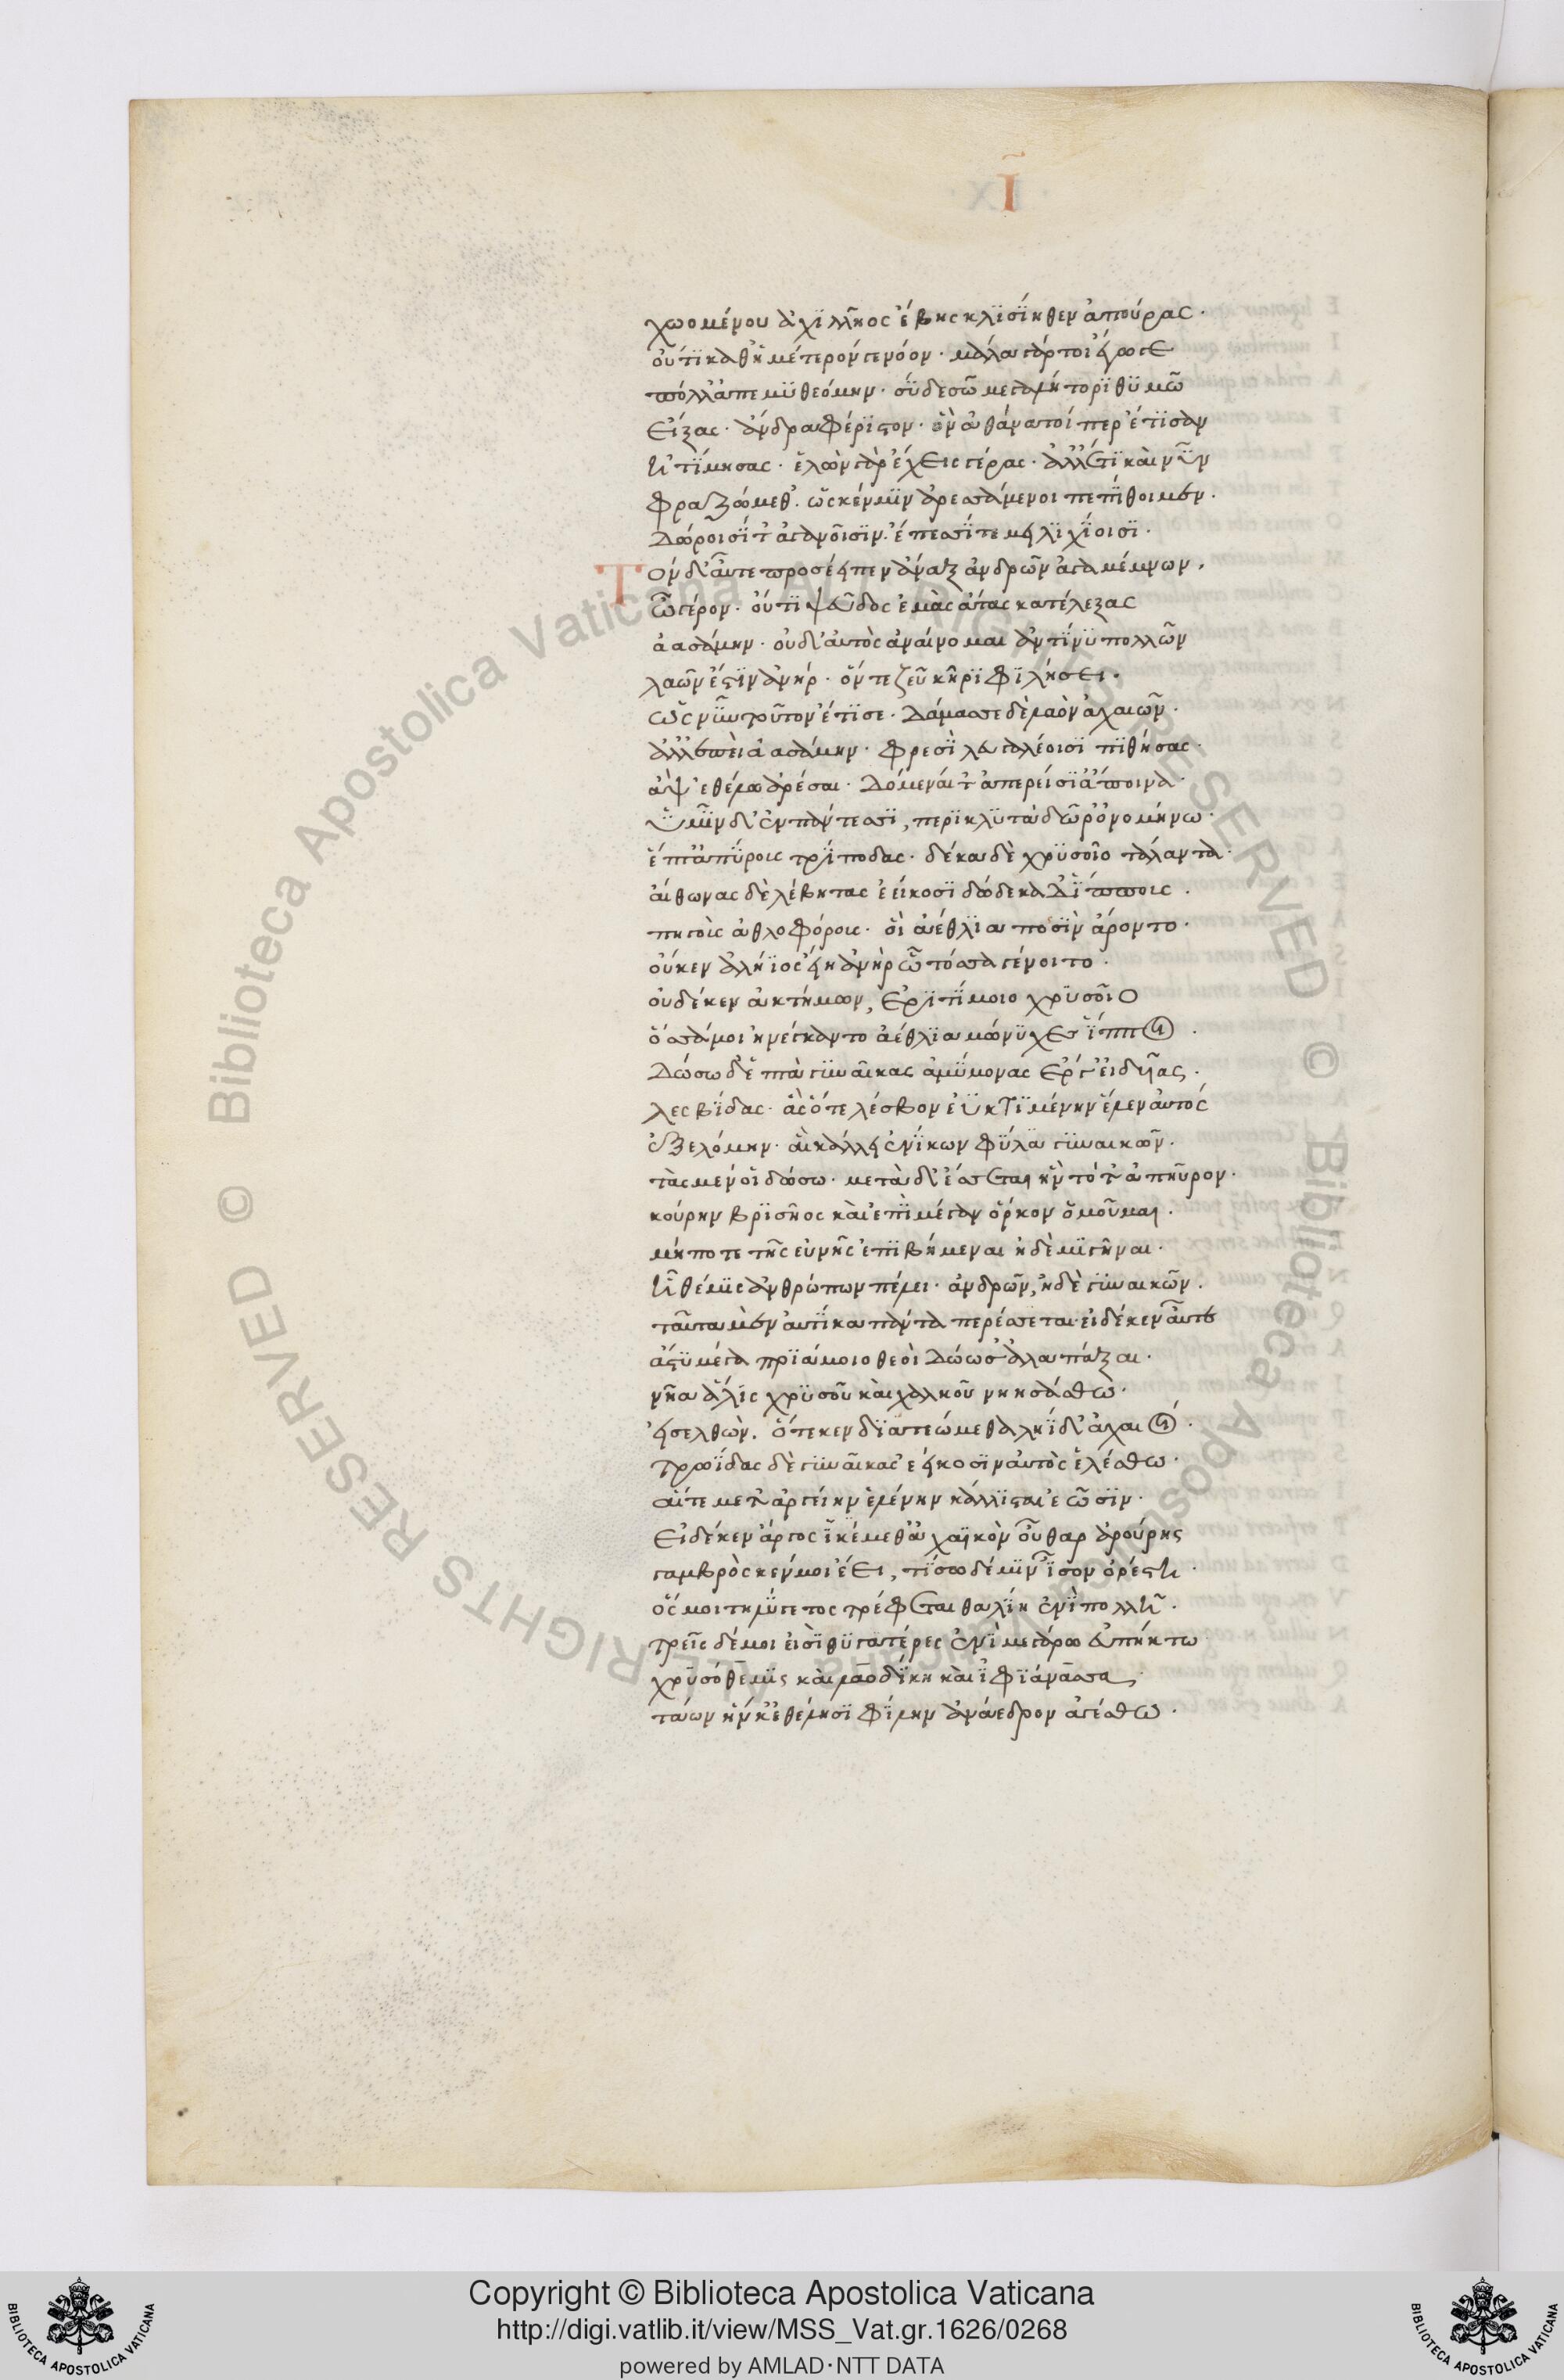 Ι
χωομένου ἀχϊλλῆος ἔβης κλϊσΐηθεν ἀπούρας·
οὔτϊ καθ' ἡμέτερόν γε νόον· μάλα γάρ τοι ἔγωγε
πόλλ' ἀπεμϋθεόμην· σὺ δὲ σῶ μεγαλήτορϊ θϋμῶ
εἴξας· ἄνδρα φέρϊστον· ὃν ἀθάνατοί περ ἔτϊσαν
ἠτΐμησας· ἑλὼν γὰρ ἔχεις γέρας· ἀλλ' ἔτϊ καὶ νῦν
φραζώμεθ'. ὥς κέν μϊν ἀρεσσάμενοι πεπΐθοιμεν·
δώροισΐ τ' ἀγανοῖσϊν· ἔπεσσΐ τε μειλϊχΐοισϊ·
Τὸν δ' αὖτε προσέειπεν ἄναξ ἀνδρῶν ἀγαμέμνων,
ὦ γέρον· οὔτϊ ψεῦδος ἐμὰς ἄτας κατέλεξας
ἀασάμην· οὐδ' αὐτὸς ἀναίνομαι ἀντΐ νϋ πολλῶν
λαῶν ἐστϊν ἀνήρ· ὅν τε ζεῦ κῆρϊ φϊλήσει·
ὡς νῦν τοῦτον ἔτϊσε· δάμασσε δὲ λαὸν ἀχαιῶν·
ἀλλ' ἐπεὶ ἀασάμην· φρεσῒ λευγαλέοισϊ πϊθήσας·
ἂψ ἐθέλω ἀρέσαι· δόμεναί τ' ἀπερείσϊ' ἄποινα·
ὑμῖν δ' ἐν πάντεσσϊ, περϊκλϋτὰ δῶρ' ὀνομήνω·
ἕπτ' ἀπΰροις τρΐποδας· δέκα δὲ χρϋσοῖο τάλαντα·
αἴθωνας δὲ λέβητας ἐείκοσϊ δώδεκα δ' ἵπποις·
πηγοὶς ἀθλοφόροις· οἳ ἀέθλϊα ποσῒν ἄροντο·
οὔκεν ἀλήϊος εἴη ἀνὴρ ὧ τόσσα γένοιτο·
οὐδέ κεν ἀκτήμων, ἐρϊτΐμοιο χρϋσοῖο
ὅσσά μοι ἠνείκαντο ἀέθλϊα μώνϋχες ἵπποι·
δώσω δ' ἑπτὰ γϋναῖκας ἀμΰμονας ἔργ' εἰδυῖας·
λεσβΐδας· ἃς ὅτε λέσβον ἐϋκτϊμένην ἕλεν αὐτός
ἐξελόμην· αἳ κάλλει ἐνΐκων φῦλα γϋναικῶν·
τὰς μέν οἱ δώσω· μετὰ δ' ἔσσεται ἣν τότ' ἀπηῦρον·
κούρην βρϊσῆος καὶ ἐπῒ μέγαν ὅρκον ὁμοῦμαι·
μήποτε τῆς εὐνῆς ἐπϊβήμεναι ἠδὲ μϊγῆναι·
ἣ θέμϊς ἀνθρώπων πέλει· ἀνδρῶν, ἠδὲ γϋναικῶν·
ταῦτα μὲν αὐτΐκα πάντα περέσσεται· εἰ δέ κεν αὖτε
ἄστϋ μέγα πρϊάμοιο θεοὶ δώωσ' ἀλαπάξαι·
νῆα ἅλϊς χρϋσοῦ καὶ χαλκοῦ νηησάσθω·
εἰσελθών. ὅτε κεν δϊατεώμεθα ληΐδ' ἀχαιοί·
τρωϊάδας δὲ γϋναῖκας ἐείκοσϊν αὐτὸς ἑλέσθω·
αἵ τε μετ' ἀργείην ἑλένην κάλλϊσται ἔωσϊν·
εἰ δέ κεν ἄργος ἱκέμεθ' ἀχαιϊκὸν οὖθαρ ἀρούρης
γαμβρὸς κέν μοι ἔοι, τΐσω δέ μϊν ἶσον ὀρέστη·
ὅς μοι τηλΰγετος τρέφεται θαλΐη ἐνῒ πολλῆ·
τρεῖς δέ μοι εἰσῒ θϋγατέρες ἐνῒ μεγάρω εὐπήκτω
χρϋσόθεμϊς καὶ λαοδΐκη καὶ ἰφϊάνασσα·
τάων ἥν κ' ἐθέλησϊ φΐλην ἀνάεδνον ἀγέσθω·
Copyright © Biblioteca Apostolica Vaticana
http://digi.vatlib.it/view/MSS_Vat.gr.1626/0268
powered by AMLAD·NTT DATA